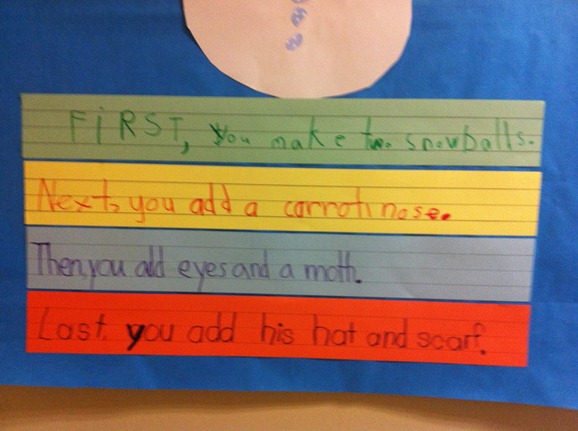 FiRST, you make two snowballs.
Next, you add a carrot nose.
Then you add eyes and a moth.
Last, you add his hat and scarf.